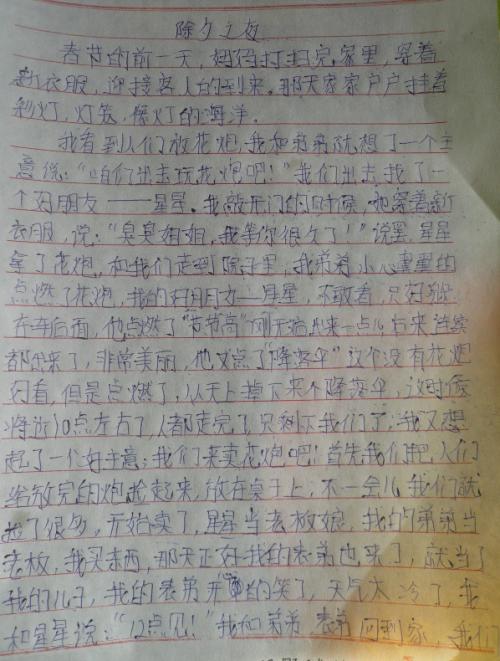 除夕之夜
春节的前一天，妈妈打扫完家里，穿着
新衣服，迎接客人的到来。那天家家户户挂着
彩灯，灯笼，像灯的海洋。
我看到人们放花炮，我和弟弟就想了一个主
意说：“咱们出去玩花炮吧！”我们出去找了一
个好朋友——星星。我敲开门的时候，她穿着新
衣服，说：“臭臭姐姐，我等你很久了！”说罢，星星
拿了花炮，和我们走到院子里，我弟弟小心翼翼的
点燃了花炮，我的好朋友—星星，不敢看，只好躲
在车后面，他点燃了“节节高”刚开始出来一点儿后来连续
都出来了，非常美丽，他又点了“降落伞”这个没有花炮
好看，但是点燃了，从天上掉下来个降落伞，这时候
将近10点左右了，人都走完了，只剩下我们了，我又想
起了一个好主意；我们来卖花炮吧！首先我们把人们
给放完的炮捡起来，放在桌子上，不一会儿我们就
捡了很多，开始卖了，星星当老板娘，我的弟弟当
老板，我买东西，那天正好我的表弟也来了，就当了
我的儿子，我的表弟开的笑了，天气太冷了，我
和星星说：“12点见！”我和弟弟 表弟回到家，我们